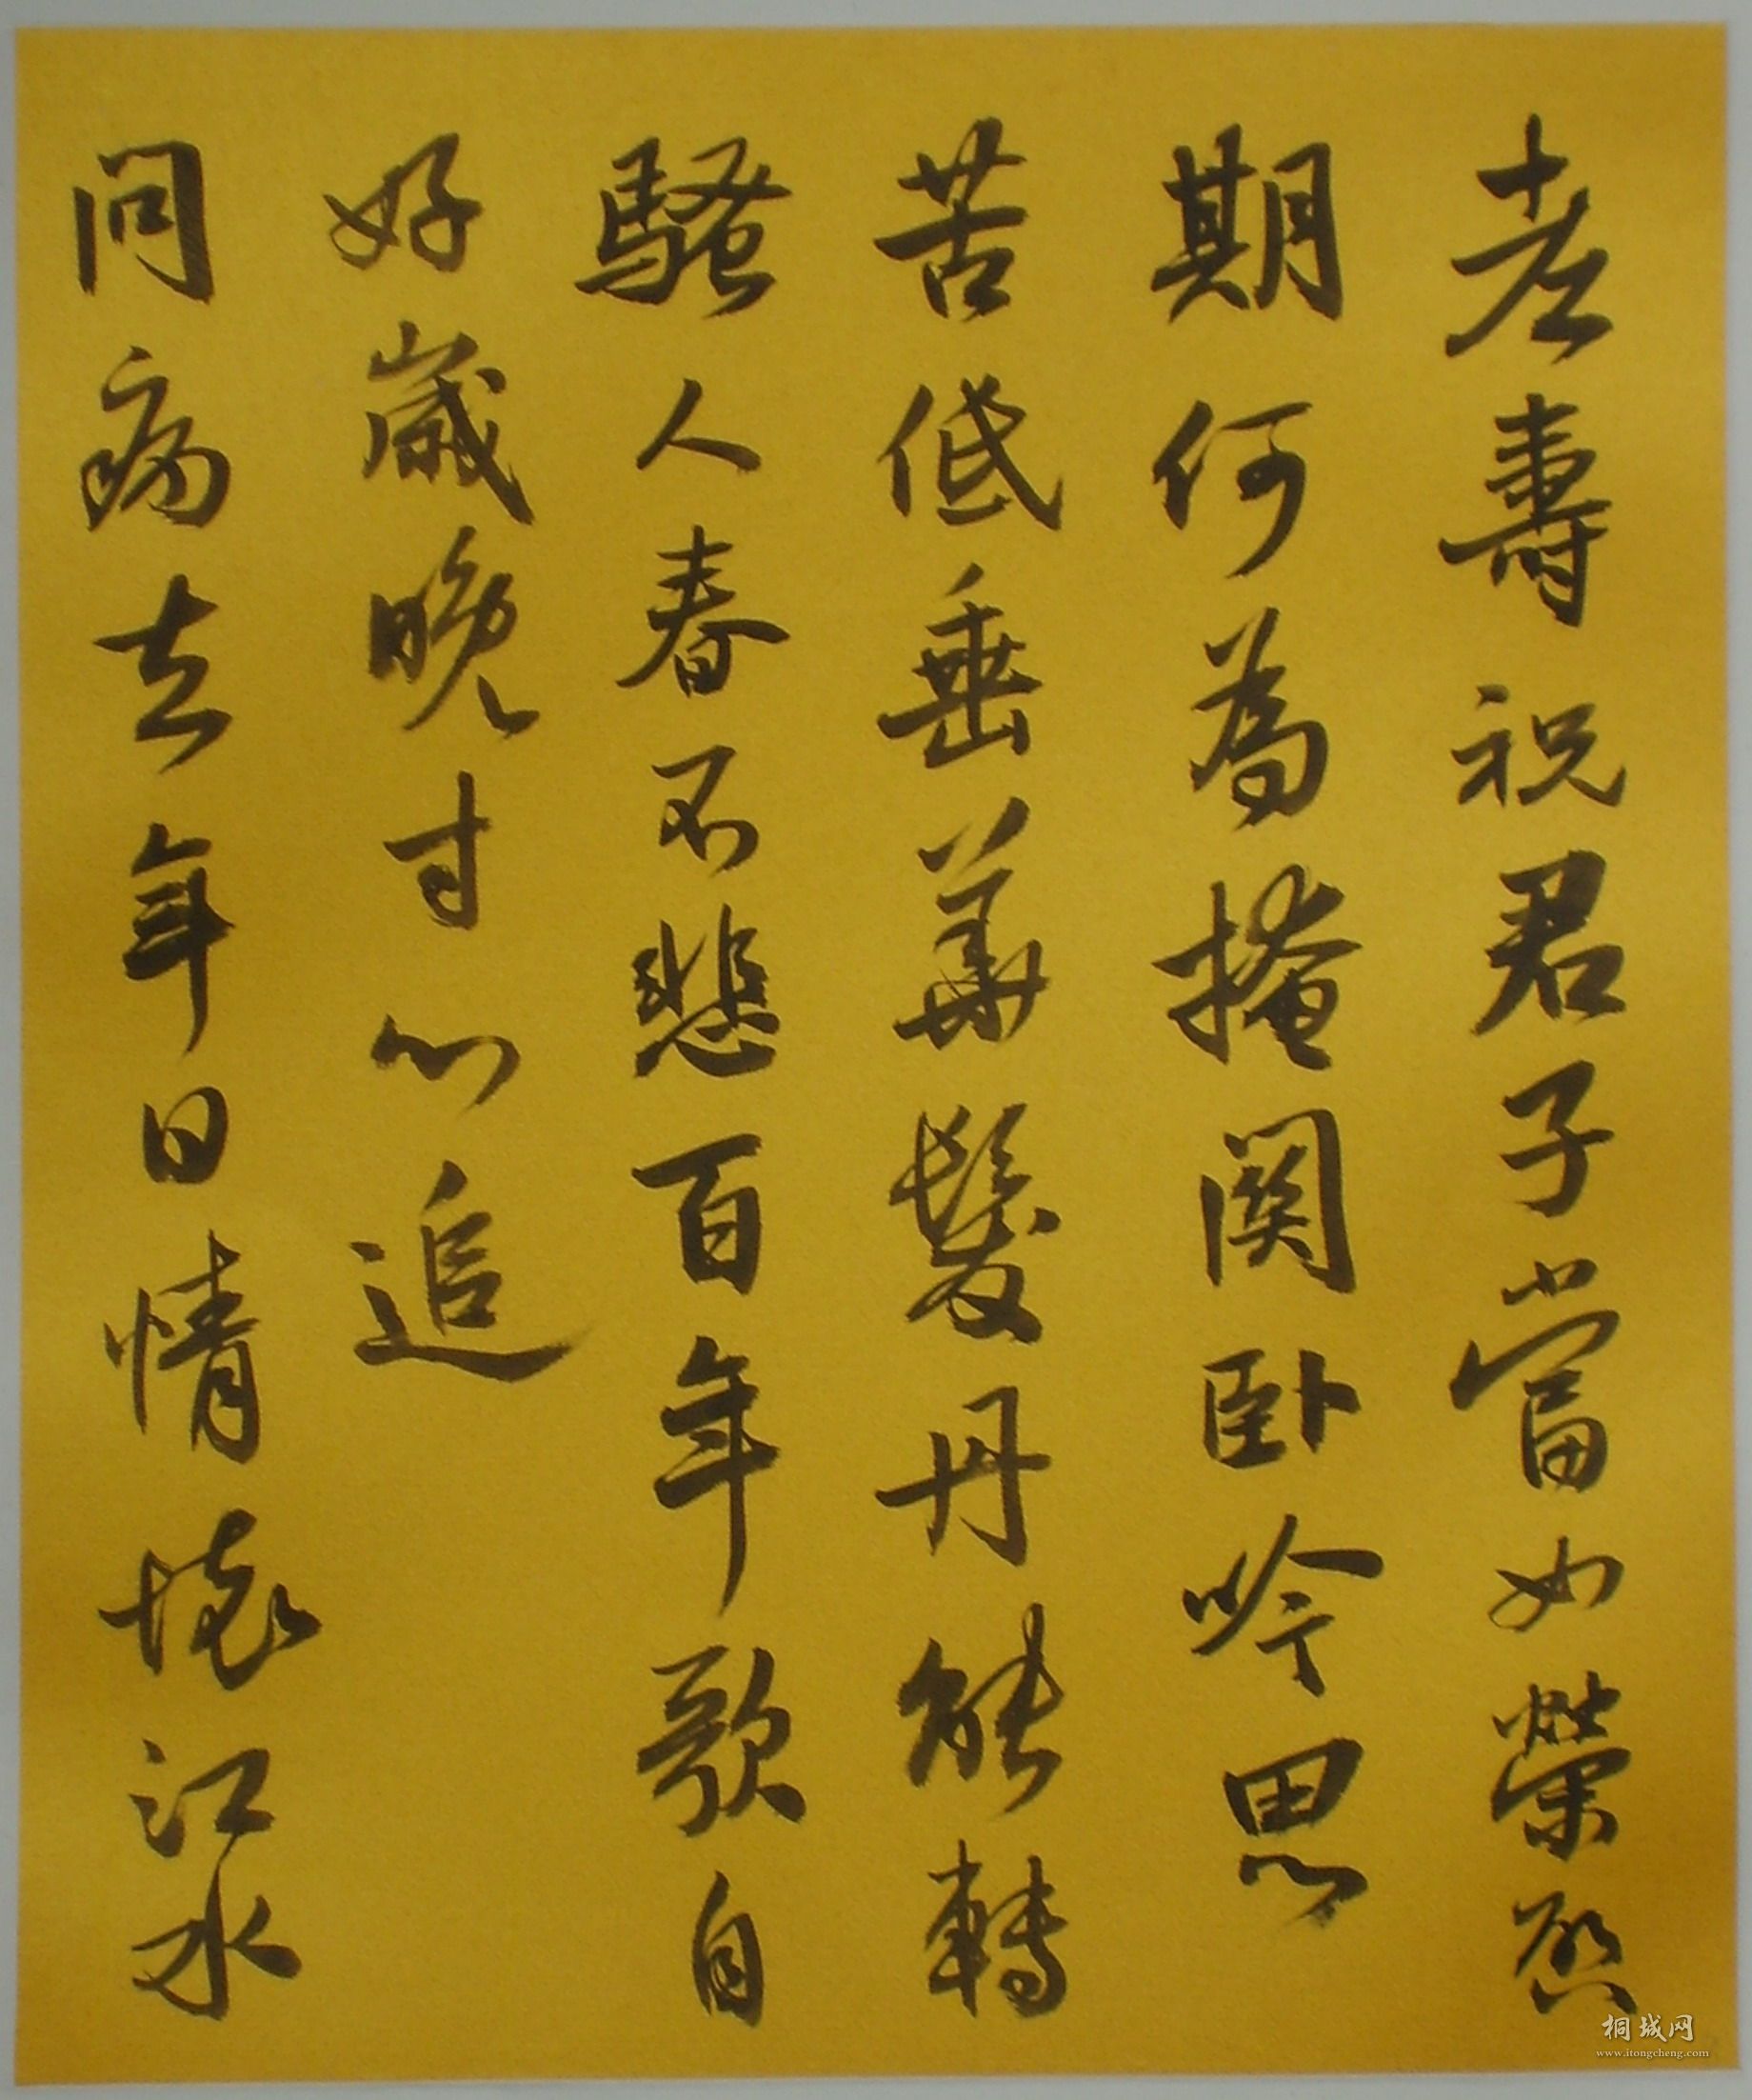 老壽祝君子當如榮啟
期何為掩關卧吟思
苦低垂華髮丹能轉
騷人春不悲百年歌自
好歲晚寸心追
問病去年日情懷江水
桐城网
www.itongcheng.com